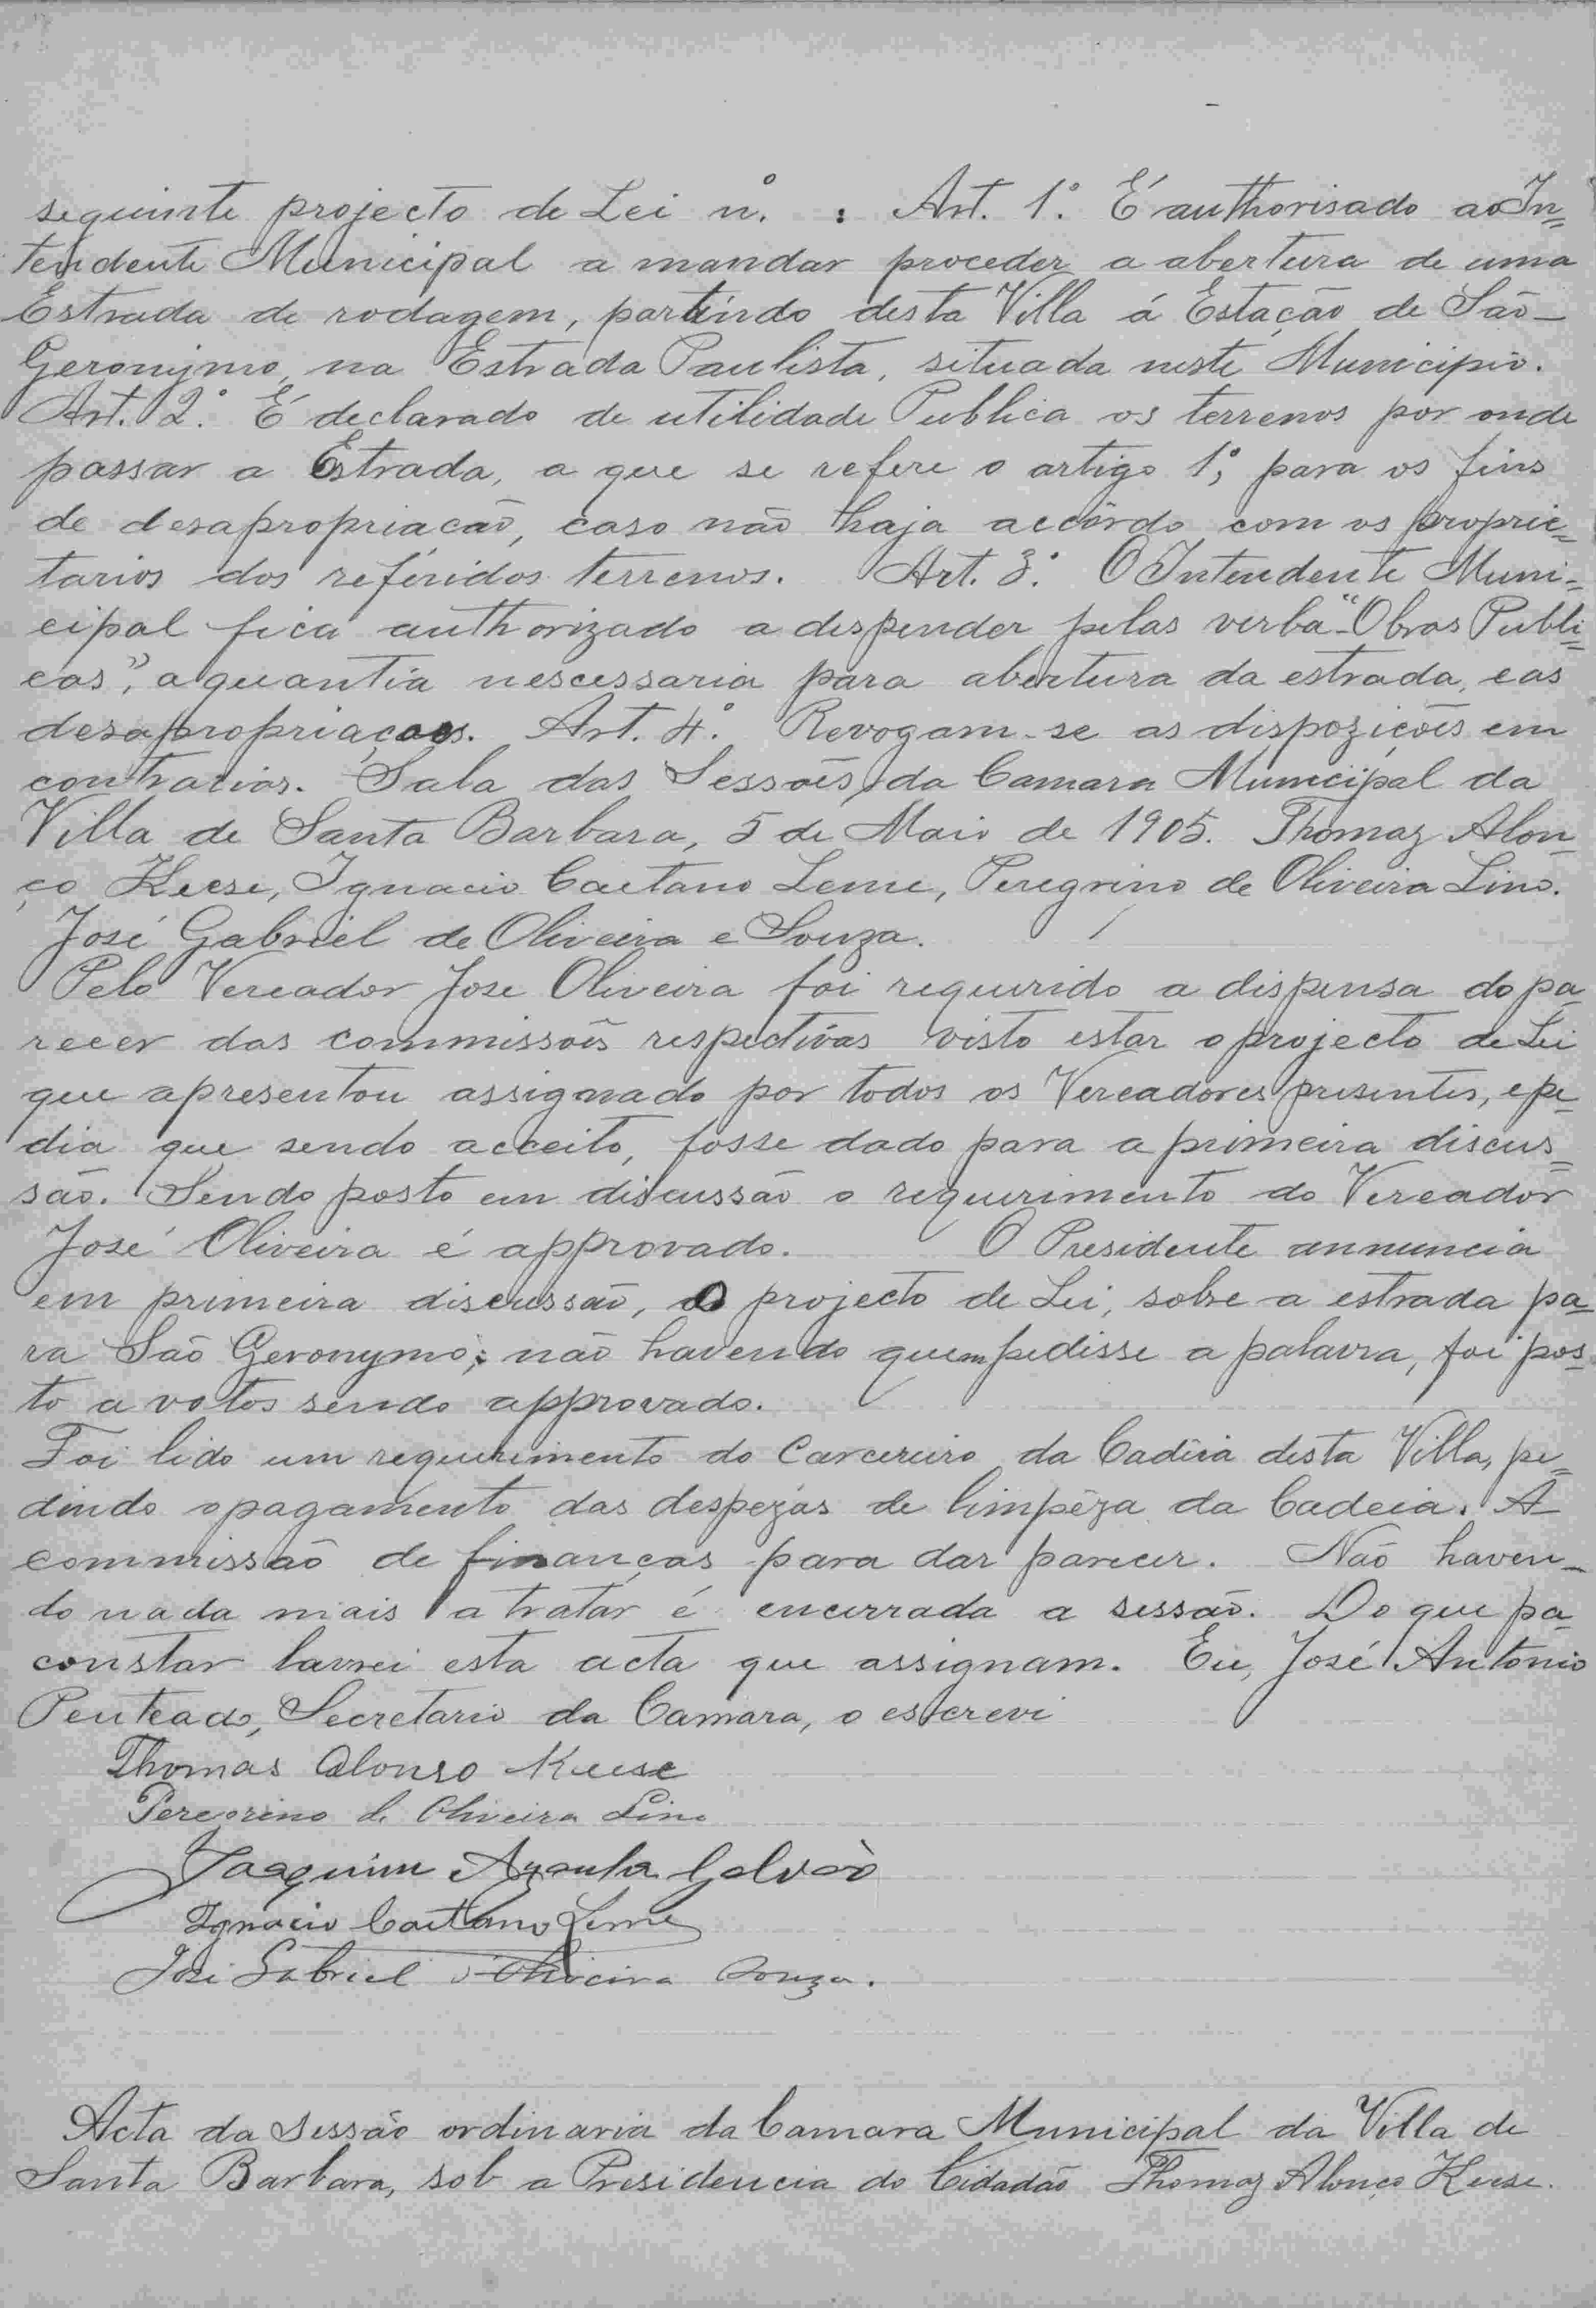 seguinte projecto de Lei n.º : Art. 1.º É authorisado ao In=
tendente Municipal a mandar proceder a abertura de uma
Estrada de rodagem, partindo desta Villa á Estação de São-
Geronymo, na Estrada Paulista, situada neste Municipio.
Art. 2.º É declarado de utilidade Publica os terrenos por onde
passar a Estrada, a que se refere o artigo 1º, para os fins
de desapropriacão, caso não haja accôrdo com os proprie=
tarios dos referidos terrenos. Art. 3.º O Intendente Muni=
cipal fica authorizado a despender pelas verba "Obras Publi=
cas", a quantia nescessaria para abertura da estrada, e as
desapropriaçaes. Art. 4.º Revogam-se as dispozições em
contrarios. Sala das Sessões da Camara Municipal da
Villa de Santa Barbara, 5 de Maio de 1905. Thomaz Alon-
ço Keese, Ignacio Caetano Leme, Peregrino de Oliveira Lino.
José Gabriel de Oliveira e Souza.
Pelo Vereador Jose Oliveira foi requerido a dispensa do pa-
recer das commissões respectivas visto estar o projecto de Lei
que apresentou assignado por todos os Vereadores presentes, e pe-
dia que sendo acceito, fosse dado para a primeira discus=
são. Sendo posto em discussão o requerimento do Vereador
José Oliveira é approvado. O Presidente annuncia
em primeira discussão, o projecto de Lei, sobre a estrada pa-
ra São Geronymo; não havendo quem pedisse a palavra, foi pos-
to a votos sendo approvado.
Foi lido um requerimento do Carcereiro da Cadeia desta Villa, pe=
dindo o pagamento das despezas de limpêza da Cadeia. A-
commissão de finanças para dar parecer. Não haven-
do nada mais a tratar é encerrada a sessão. Do que pa-
constar lavrei esta acta que assignam. Eu, José Antonio
Penteado, Secretario da Camara, o escrevi
Thomas Alonso Keese
Peregrino de Oliveira Lino
Joaquim Azanha Galvão
Ignacio Caetano Leme
José Gabriel d'Oliveira Souza.
Acta da Sessão ordinaria da Camara Municipal da Villa de
Santa Barbara, sob a Presidencia do Cidadão Thomaz Alonço Keese.